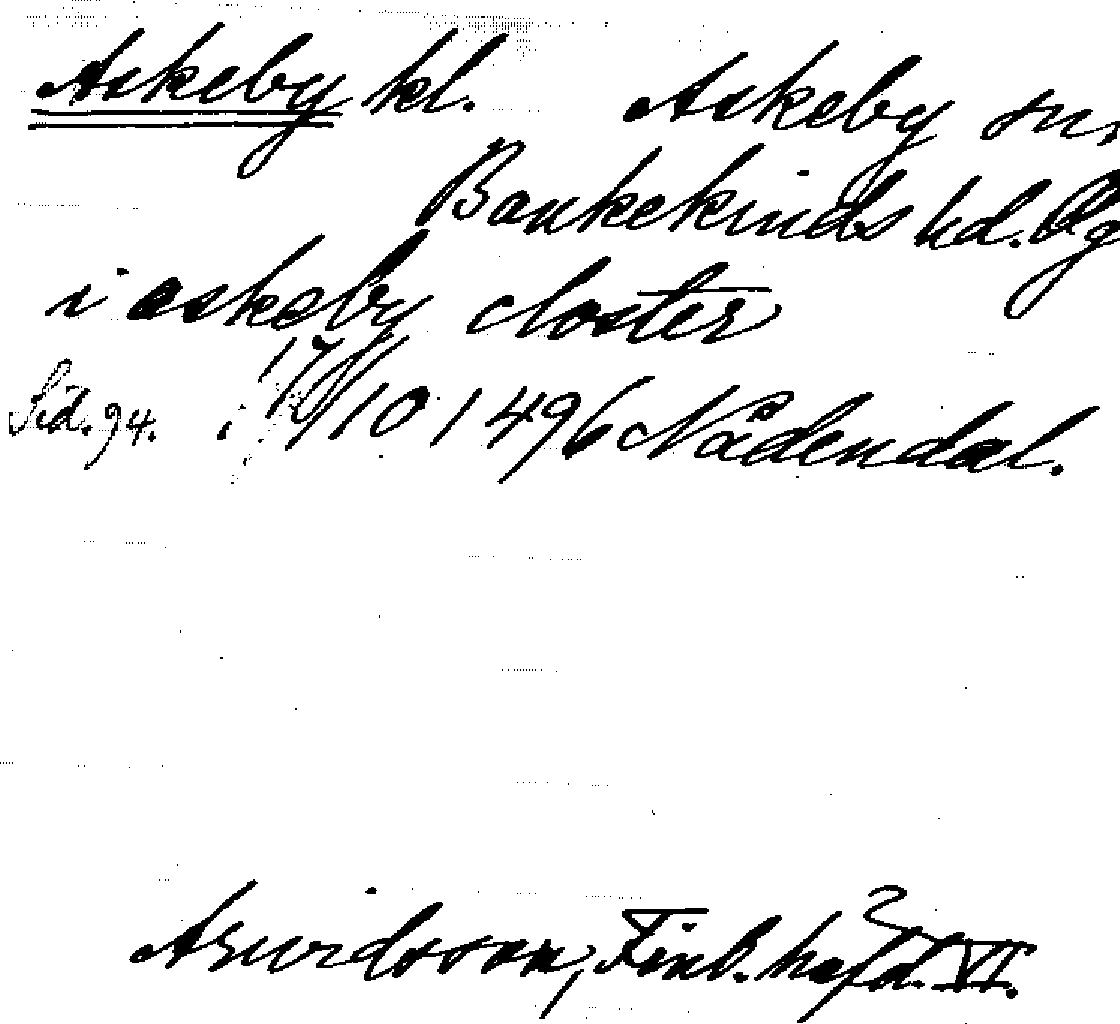 Askeby kl. Askeby sn,
Bankekinds hd. Ög
i askeby closter
Sid. 94. 17/10 1496 Nådendal.
Arwidsson, Finl. häfd. VI.